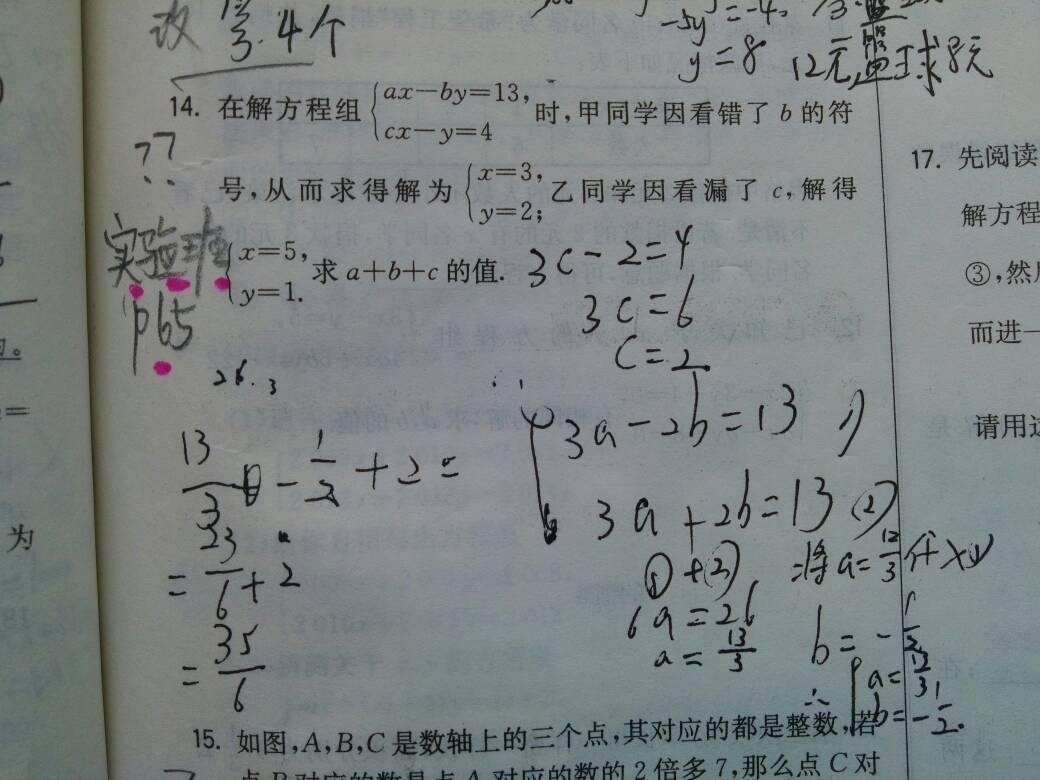 -5y=-4.
y=8
12元 球8元
改 4个
14. 在解方程组{ax-by=13, cx-y=4 时,甲同学因看错了 b 的符
号,从而求得解为{x=3, y=2; 乙同学因看漏了 c,解得
{x=5, y=1. 求 a+b+c 的值.
??
实验班
p65
3c-2=4
3c=6
c=2
26.3
3a-2b=13 1)
3a+2b=13 (2)
①+②
6a=26
a=13/3
将a=13/3代入
b=-1/2
∴{a=13/3 b=-1/2.
13/3-1/2+2=
=23/6+2
=35/6
15. 如图,A,B,C 是数轴上的三个点,其对应的都是整数,若
点 B 对应的数是点 A 对应的数的 2 倍多 7,那么点 C 对
17. 先阅读
解方程
③,然后
而进一
请用这
为